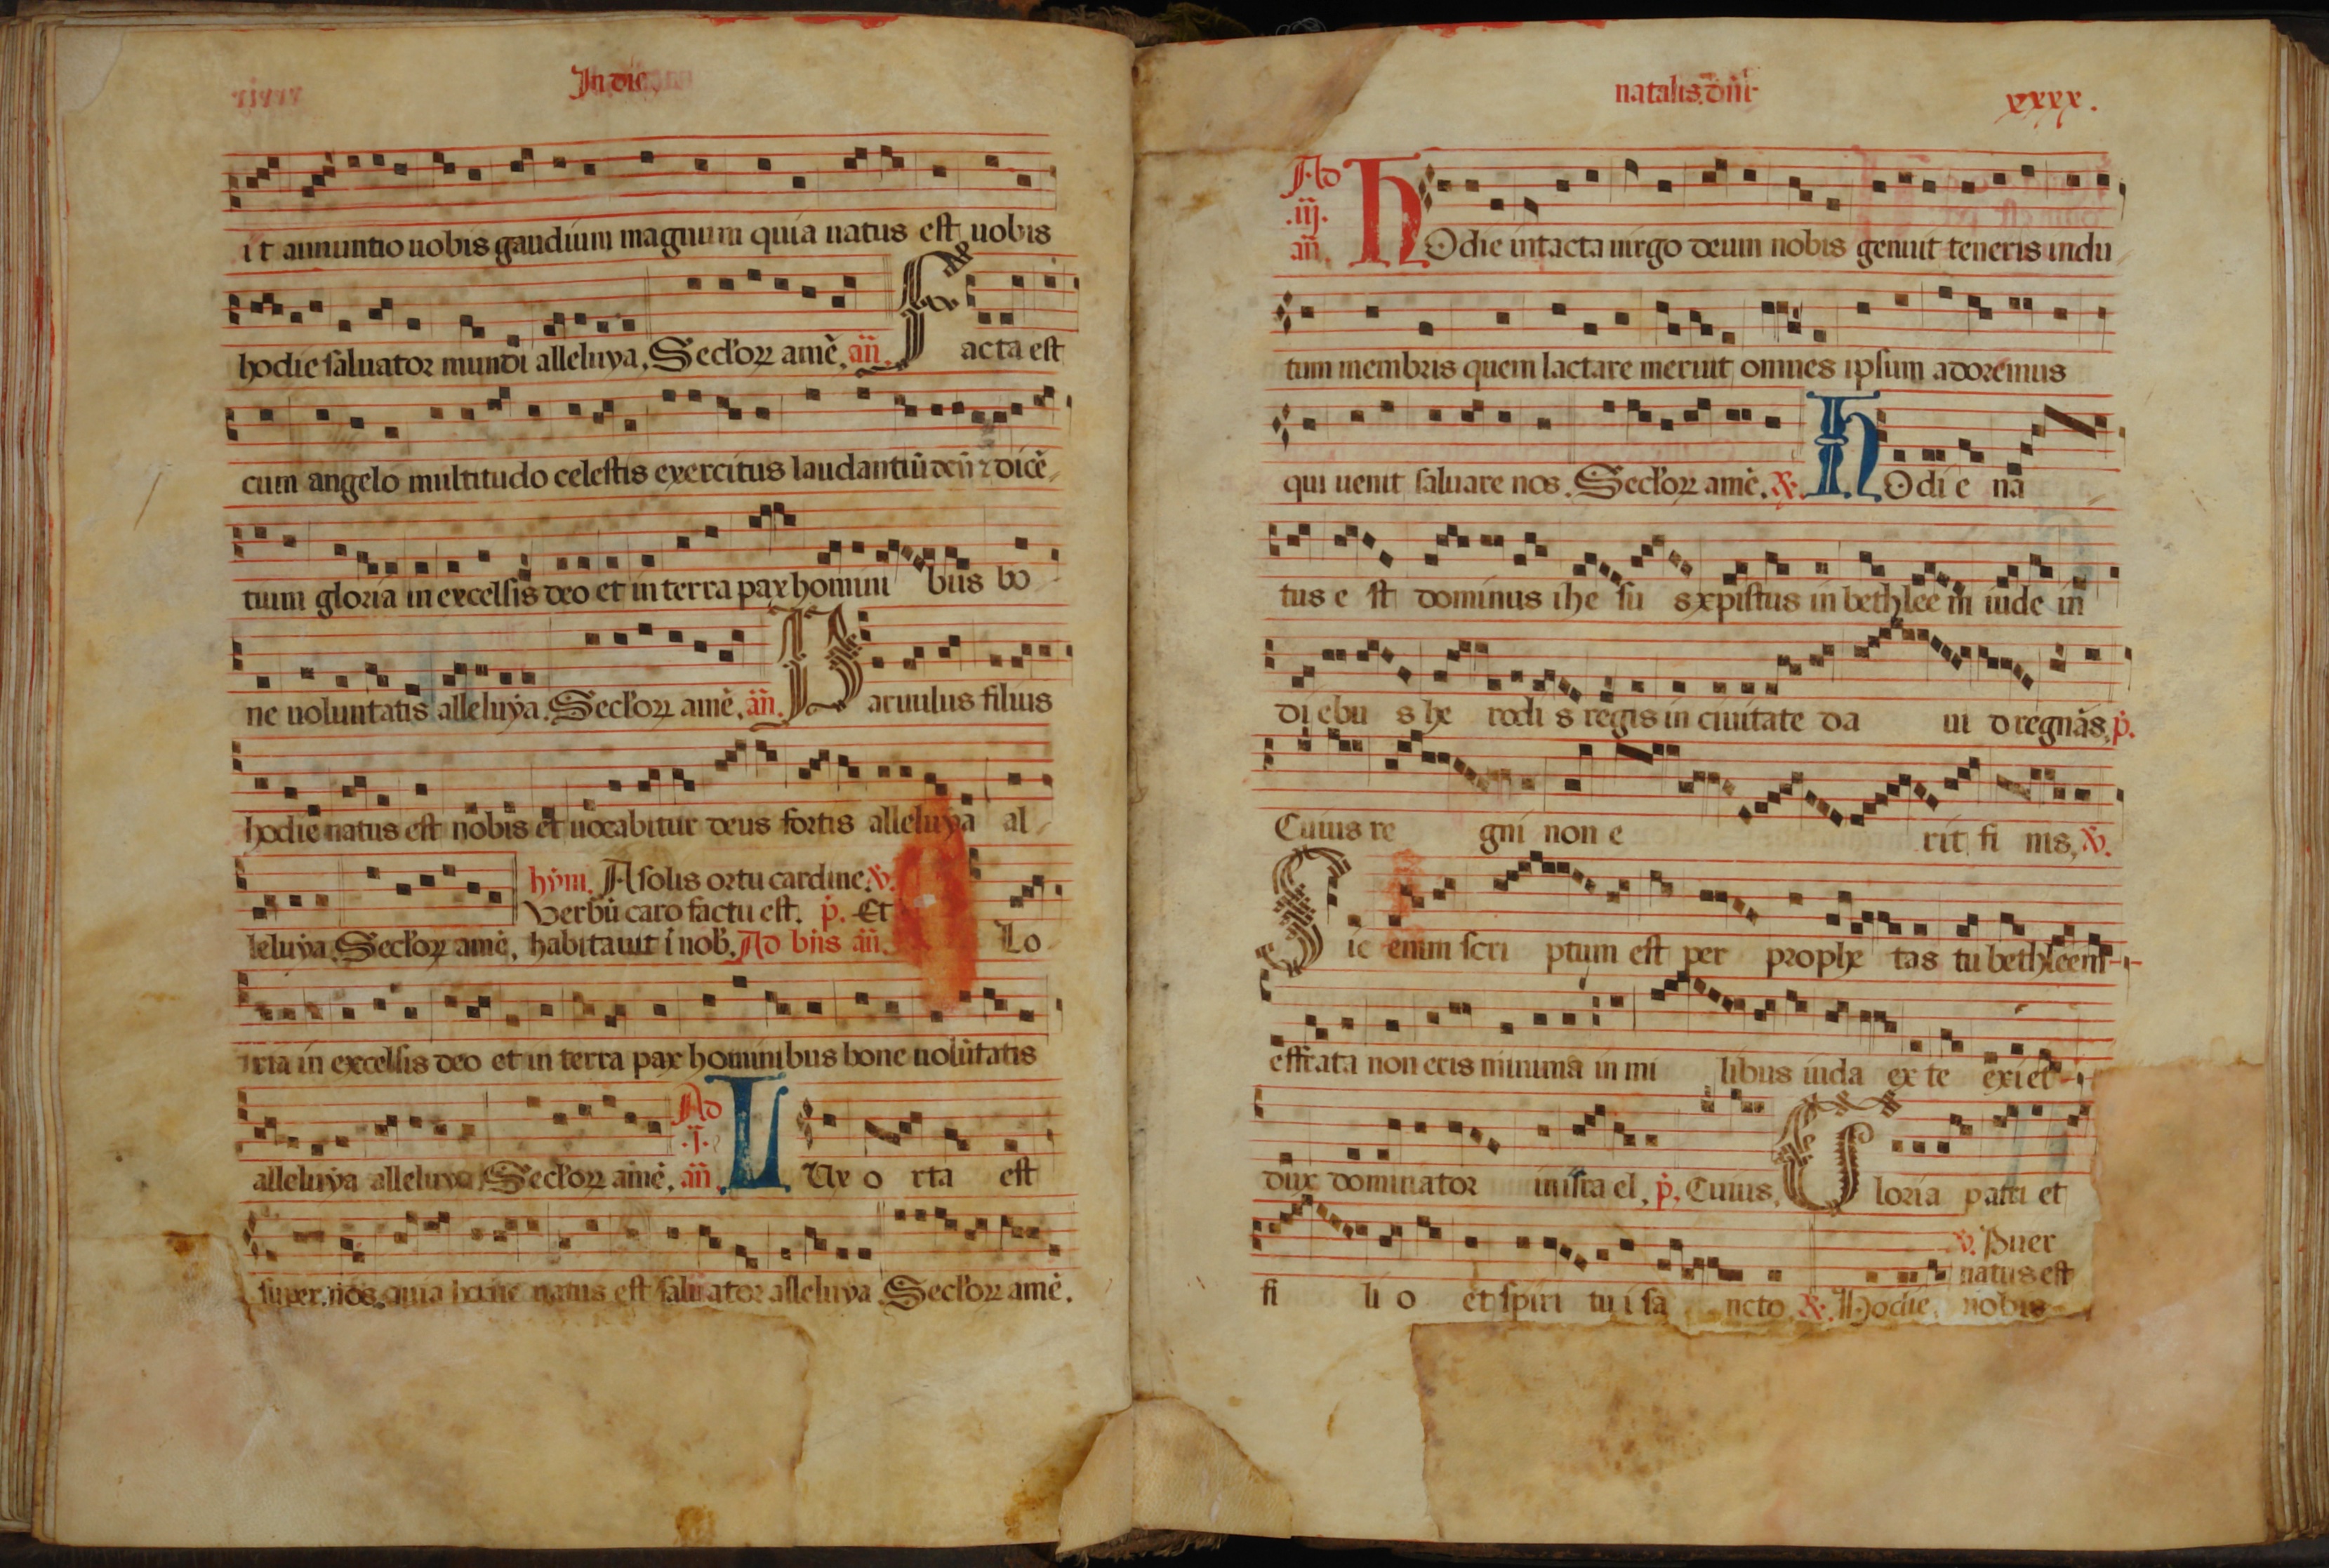 In die
it annuntio uobis gaudium magnum quia natus est uobis
hodie saluator mundi alleluya. Secl'oꝝ amē. añ. Facta est
cum angelo multitudo celestis exercitus laudantiū deū ⁊ dicē
tium gloria in excelsis deo et in terra pax homini bus bo
ne uoluntatis alleluya. Secl'oꝝ amē. añ. Paruulus filius
hodie natus est nobis et uocabitur deus fortis alleluya al
leluya Secl'oꝝ amē.
hym. A solis ortu cardine. ℣.
Verbū caro factu est. p̄. Et
habitauit ī nob'. Ad bn̄s añ. Lo
ria in excelsis deo et in terra pax hominibus bone uolūtatis
alleluya alleluya Secl'oꝝ amē. Ad .j. añ. LUx o rta est
super nos quia hodie natus est saluator alleluya Secl'oꝝ amē.
natalis dñi xxxx.
Ad .iij. añ. HOdie intacta uirgo deum nobis genuit teneris indu
tum membris quem lactare meruit omnes ipsum adoremus
qui uenit saluare nos. Secl'oꝝ amē. ℟. HOdi e na
tus e st dominus ihe su s xpistus in bethlee m iude in
di ebu s he rodi s regis in ciuitate da ui d regnās. p̄.
Cuius re gni non e rit fi nis. ℣.
Sic enim scri ptum est per prophe tas tu bethleem
effrata non eris minima in mi libus iuda ex te exiet
dux dominator in isra el. p̄. Cuius. Gloria patri et
fi li o et spiri tu i sa ncto ℟. Hodie.
℣. Puer
natus est
nobis